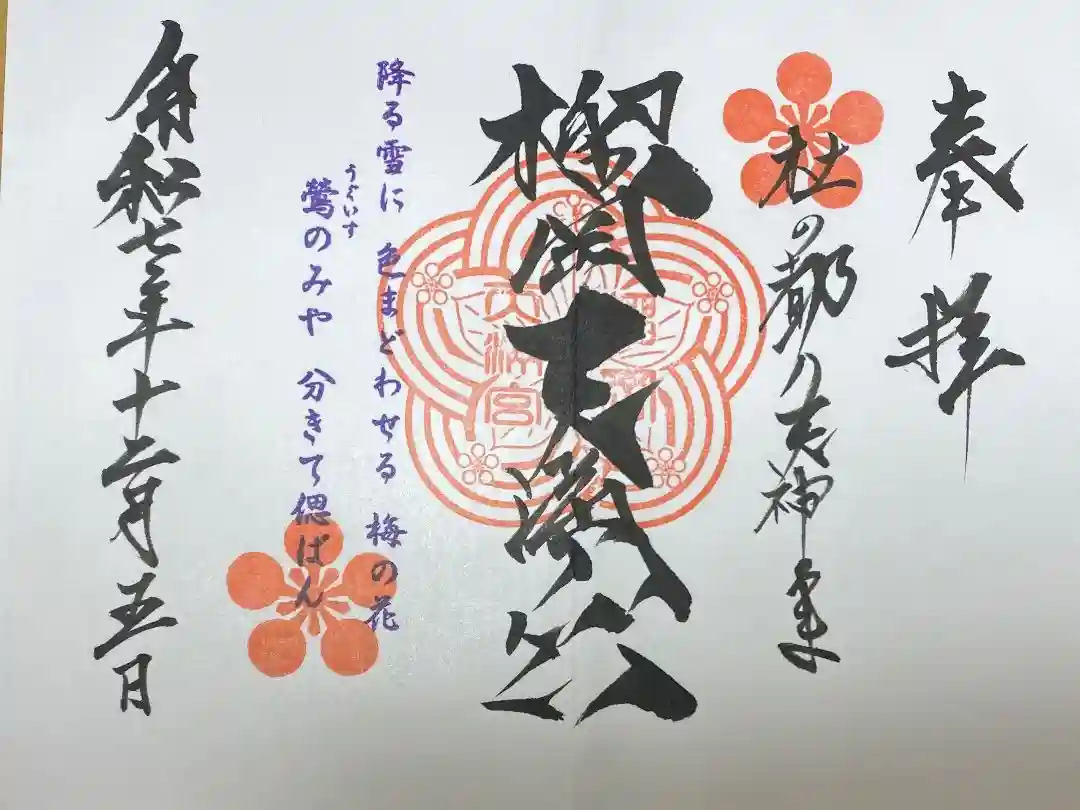 奉拝
杜の都乃天神さま
榴岡天満宮
榴岡
天満宮
降る雪に 色まどわせる 梅の花
うぐいす
鶯のみや 分きて偲ばん
令和七年十二月五日